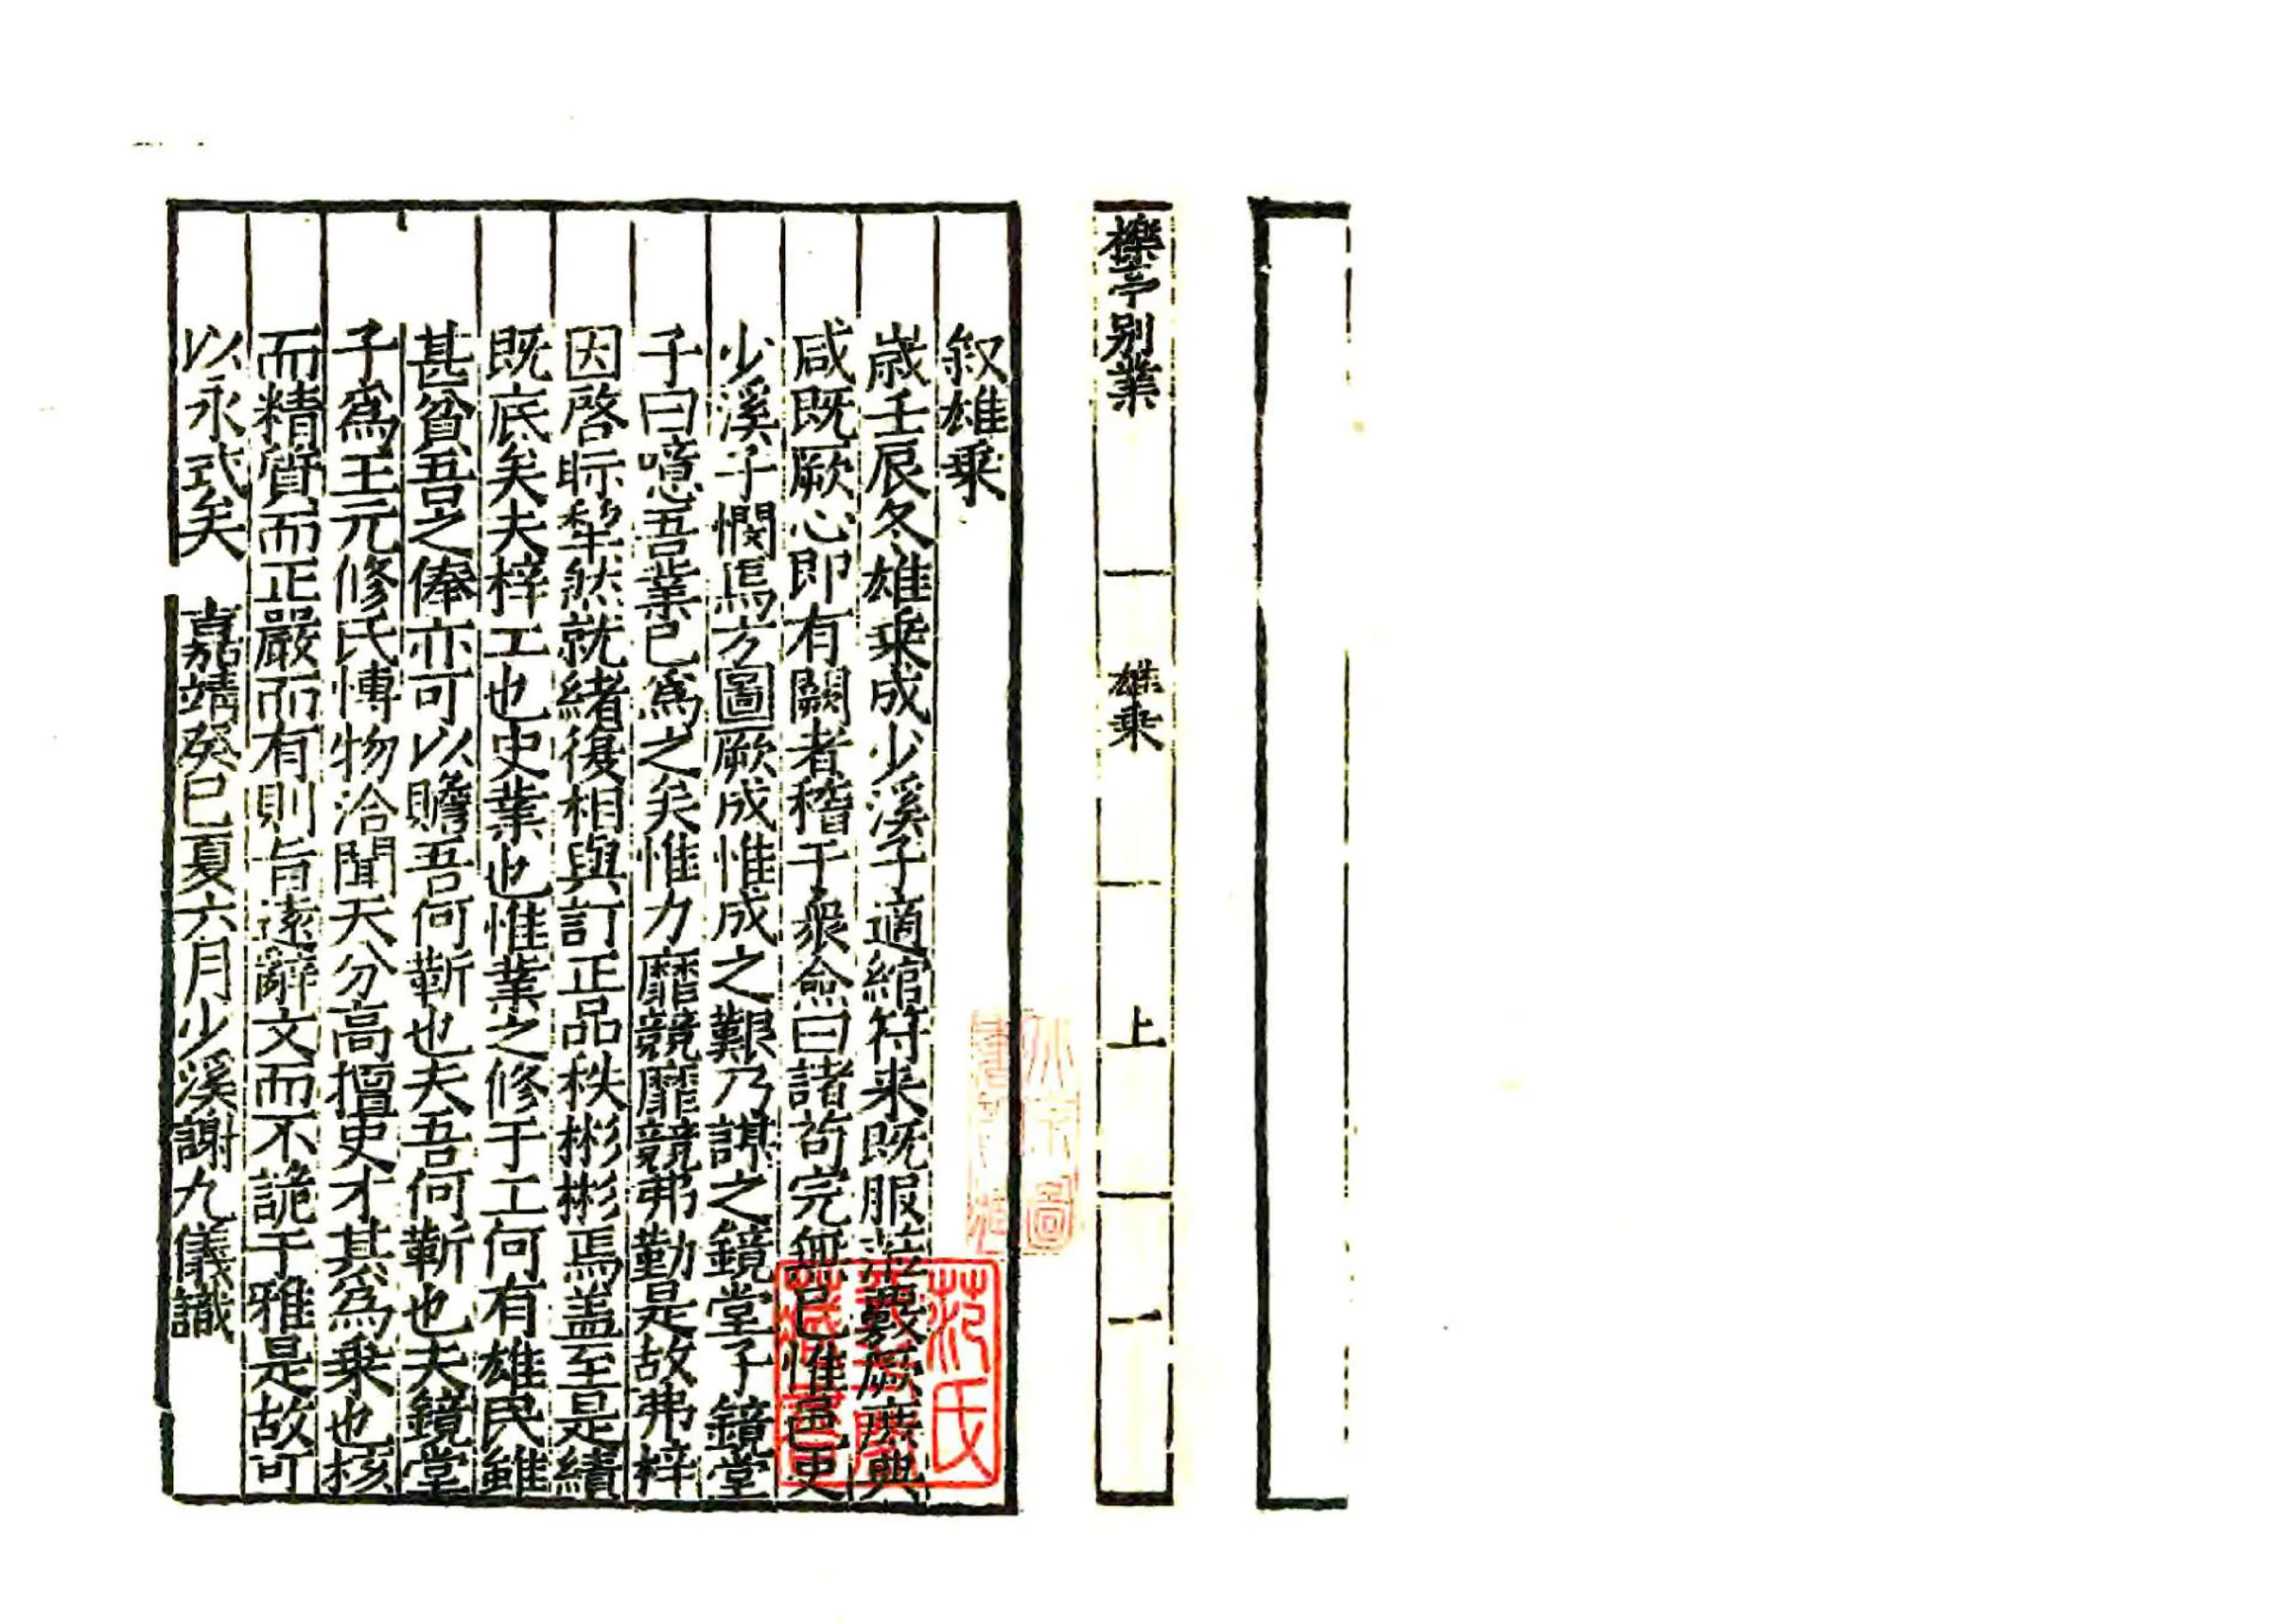 櫟亭別業
雄乗
上
一
叙雄乗
歳壬辰冬雄乗成少溪子適綰符来既服㳺藪厥廡典
咸既厥心即有闕者稽于衆僉曰諸苟完無已惟邑吏
少溪子憫焉方圖厥成惟成之艱乃謀之鏡堂子鏡堂
子曰噫吾業已爲之矣惟力靡競靡競弗勤是故弗梓
因啓眎犂然就緒復相與訂正品秩彬彬焉盖至是績
既底矣夫梓工也史業也惟業之修于工何有雄民雖
甚貧吾之俸亦可以贍吾何靳也夫吾何靳也夫鏡堂
子爲王元修氏博物洽聞天分高擅史才其爲乗也核
而精質而正嚴而有則旨遠辭文而不詭于雅是故可
以永式矣　嘉靖癸巳夏六月少溪謝九儀識
范氏
藏書